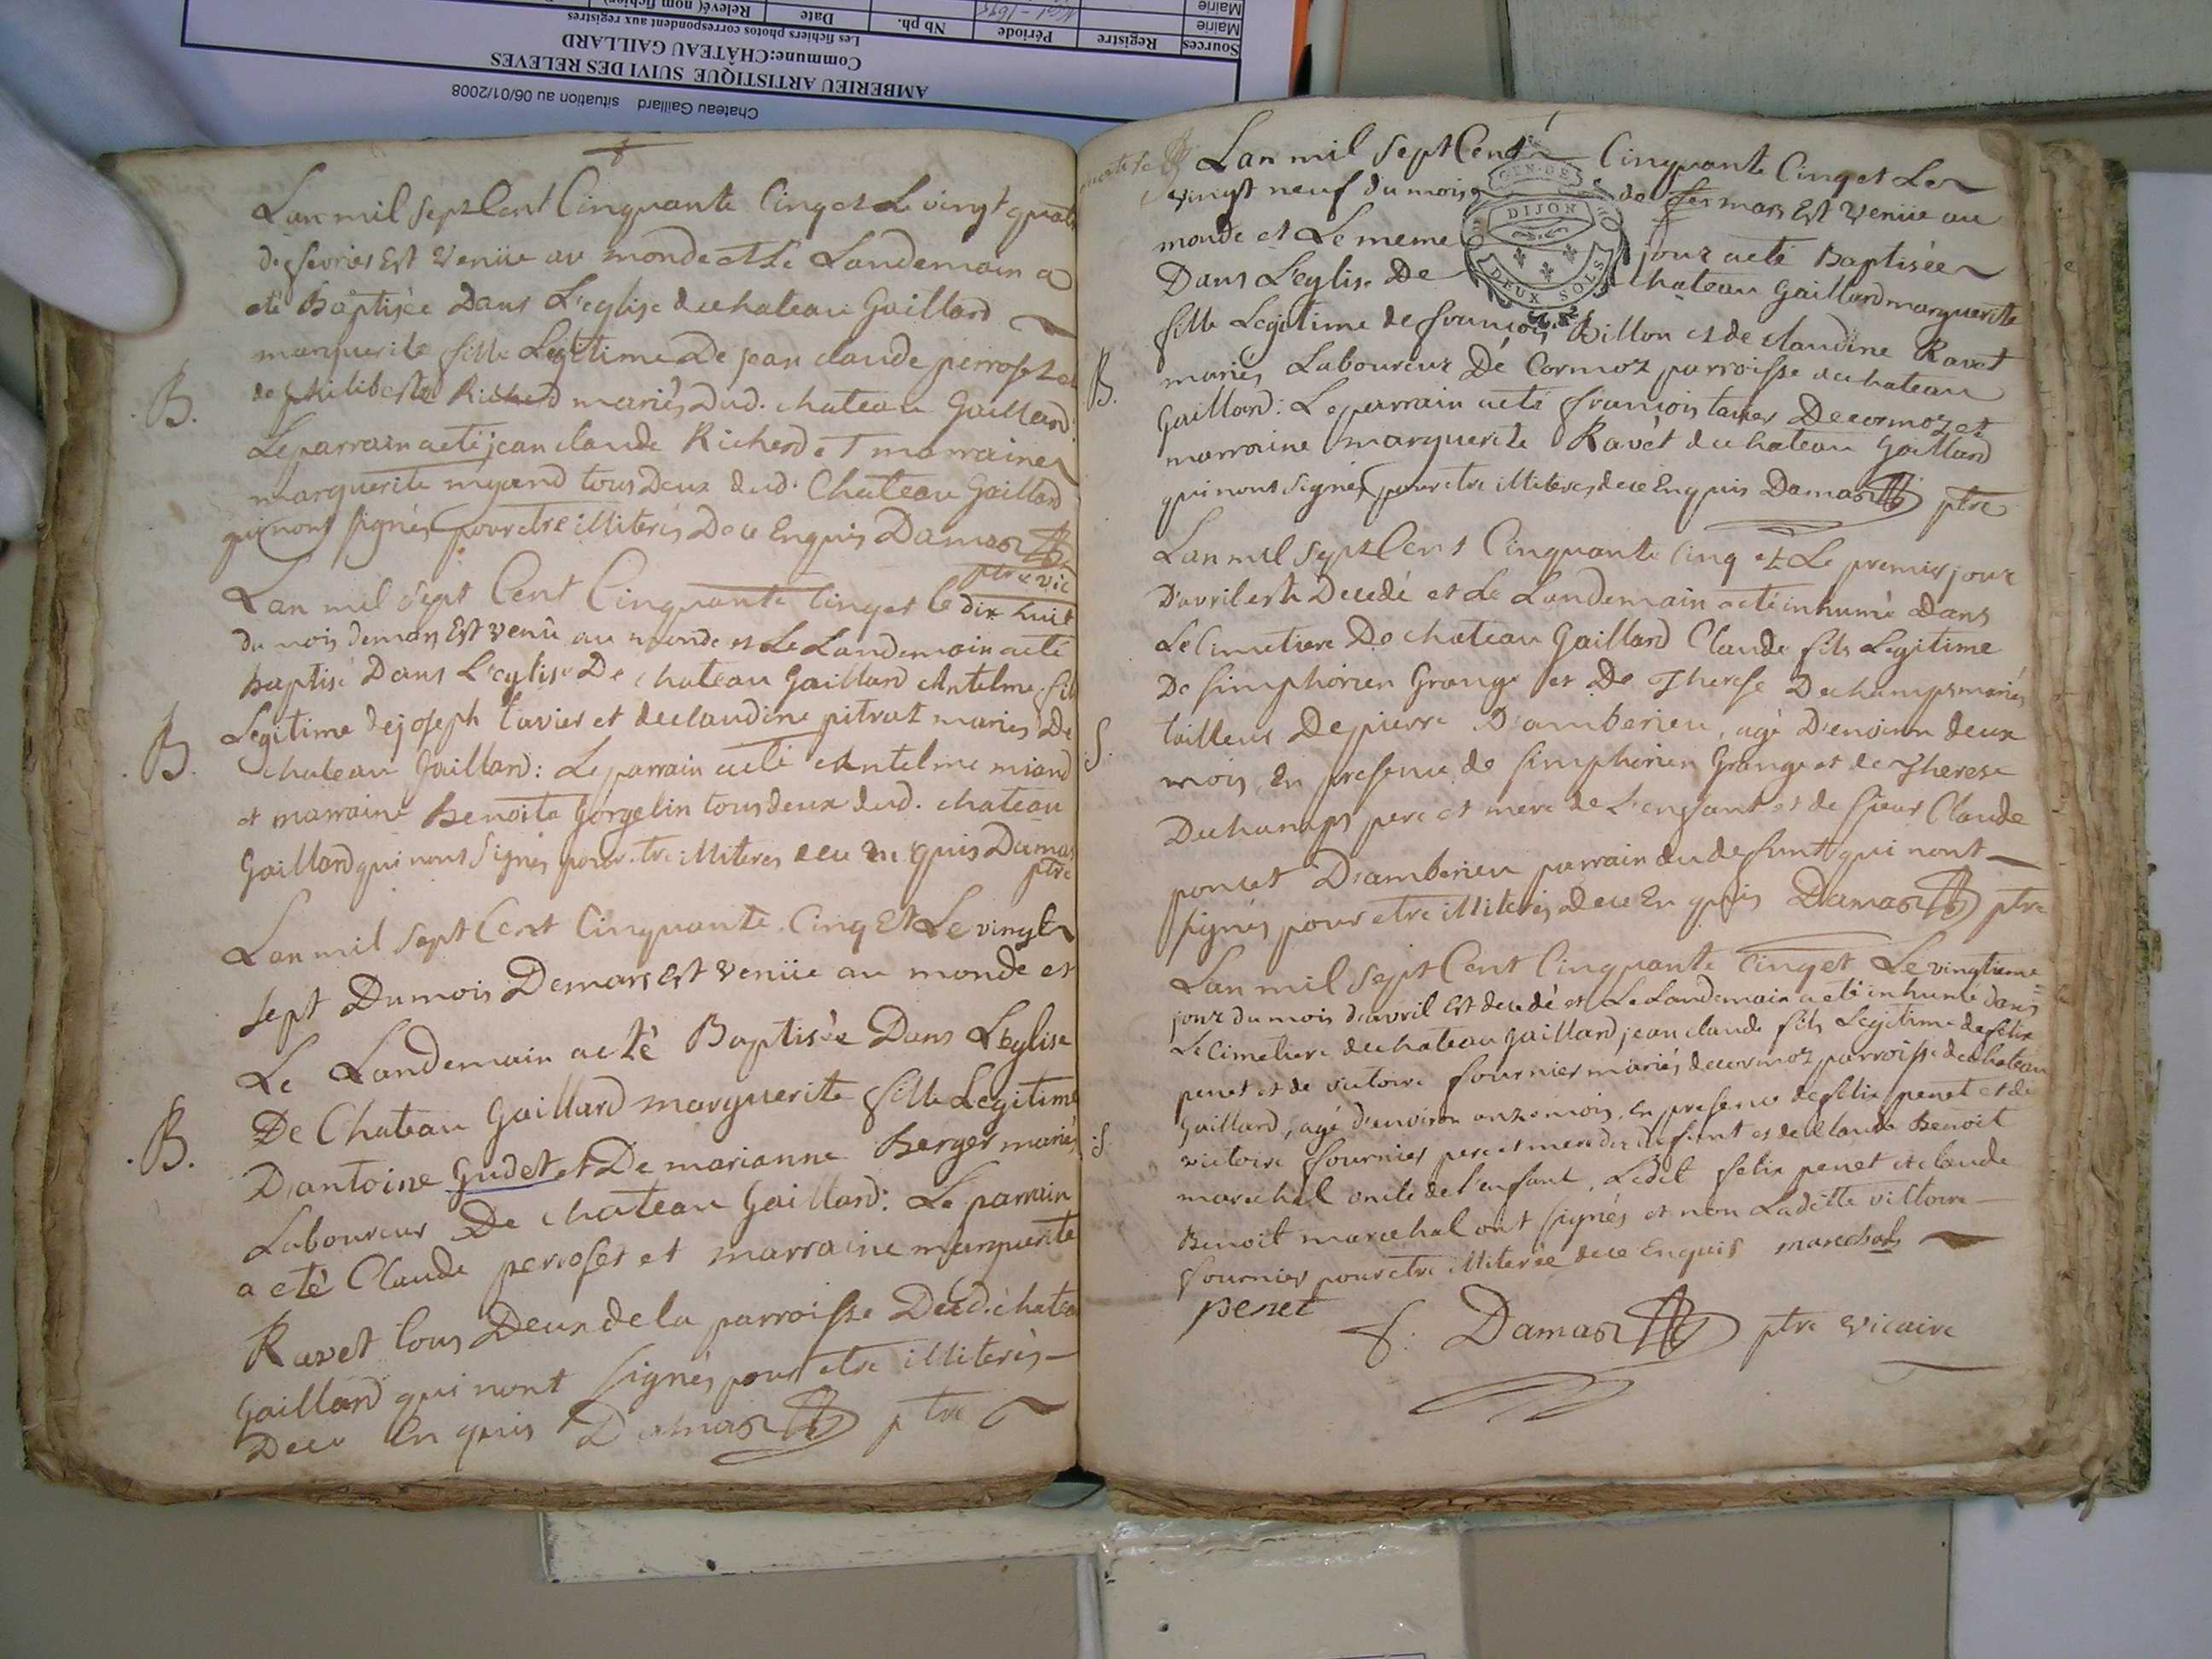 Chateau Gaillard situation au 06/01/2008
AMBERIEU ARTISTIQUE SUIVI DES RELEVES
Commune:CHÂTEAU GAILLARD
Les fichiers photos correspondent aux registres
Sources Registre Période Nb ph. Date Relevé( nom fichier)
Mairie
Mairie
Lan mil sept Cent Cinquante Cinq et Le vingt quatr
de fevrier Est Venüe au monde et Le Landemain a
eté Baptisée Dans L'eglise de chateau Gaillard
marguerite fille Legitime De jean claude perroset et
de philiberte Richerd mariés Dud. chateau Gaillard
Le parrain a eté jean claude Richerd et marraine
marguerite myand tous Deux dud. Chateau Gaillard
qui nont signés pour etre illiterés De ce Enquis Damas
ptre vic
Lan mil sept Cent Cinquante Cinq et le dix huit
du mois demars Est venû au monde et Le Landemain a eté
baptisé Dans L'eglise De chateau Gaillard Antelme fils
Legitime de joseph tavier et declaudine pitrat mariés De
chateau Gaillard: Le parrain a eté Antelme miand
et marraine Benoite Gorgelin tous deux dud. chateau
Gaillard qui nont signés pour etre illiteres de ce En quis Damas
ptre
Lan mil sept Cent Cinquante Cinq Et Le vingt
sept Dumois Demars Est venüe au monde et
Le Landemain a eté Baptisée Dans L'eglise
De Chateau Gaillard marguerite fille Legitime
D'antoine Gudet et De marianne Berger mariés
Laboureur De chateau Gaillard: Le parrain
a eté Claude perroset et marraine marguerite
Ravet tous Deux de la parroisse Dud. chateau
Gaillard qui nont signés pour etre illiterés
Dece En quis Damas ptre
B.
B.
B.
GEN. DE DIJON
DEUX SOLS
Lan mil sept Cent Cinquante Cinq et Le
vingt neuf du mois de mars Est Venüe au
monde et Le meme jour a eté Baptisée
Dans L'eglise De Chateau Gaillard marguerite
fille Legitime de francois Billon et de claudine Ravet
mariés Laboureur De Cormoz parroisse du chateau
Gaillard: Le parrain a eté francois tavier De cormoz et
marraine marguerite Ravet du chateau Gaillard
qui nont signés pour etre illiteres de ce Enquis Damas ptre
Lan mil sept Cent Cinquante Cinq et Le premier jour
D'avril est Decedé et Le Landemain a eté inhumé dans
Le Cimetiere De chateau Gaillard Claude fils Legitime
De simphorien Grange et De Therese Duchamps mariés
tailleur De pierre D'amberieu, agé D'environ deux
mois, En presence de simphorien Grange et de Therese
Duchamps pere et mere de L'enfant et de sieur Claude
poncet D'amberieu parrain du defunt qui nont
signés pour etre illiterés de ce En quis Damas ptre
Lan mil sept Cent Cinquante Cinq et Le vingtieme
jour du mois d'avril Est decedé et Le Landemain a eté inhumé dans
Le Cimetiere de chateau Gaillard jean claude fils Legitime de felix
penet et de victoire fournier mariés de cormoz parroisse de chateau
Gaillard, agé d'environ onze mois, en presence de felix penet et de
victoire fournier pere et mere du defunt et de Claude Benoit
marechal oncle de l'enfant, Ledit felix penet et claude
Benoit marechal ont signés et non Ladite victoire
fournier pour etre illiterée de ce Enquis marechal
penet
f. Damas ptre vicaire
B.
S.
S.